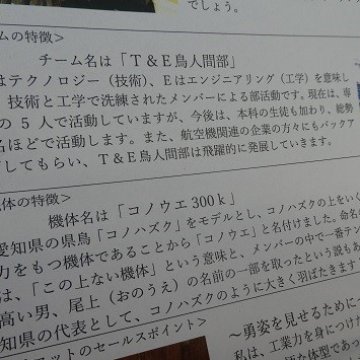 でしょう。
ムの特徴>
チーム名は「T＆E鳥人間部」
はテクノロジー（技術）、Eはエンジニアリング（工学）を意味し
技術と工学で洗練されたメンバーによる部活動です。現在は、専
の5人で活動していますが、今後は、本科の生徒も加わり、総勢
名ほどで活動します。また、航空機関連の企業の方々にもバックア
してもらい、T＆E鳥人間部は飛躍的に発展していきます。
体の特徴>
機体名は「コノウエ300k」
愛知県の県鳥「コノハズク」をモデルとし、コノハズクの上をいく
力をもつ機体であることから「コノウエ」と名付けました。命名
は、「この上ない機体」という意味と、メンバーの中で一番テン
高い男、尾上（おのうえ）の名前の一部を取ったという説もあ
知県の代表として、コノハズクのように大きく羽ばたきます
ットのセールスポイント>
～勇姿を見せるために
私は、工業力を身につけ